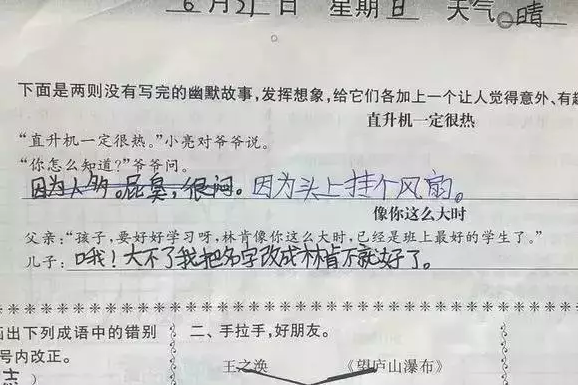 6月21日 星期日 天气 晴
下面是两则没有写完的幽默故事,发挥想象,给它们各加上一个让人觉得意外、有趣
直升机一定很热
“直升机一定很热。”小亮对爷爷说。
“你怎么知道?”爷爷问。
因为人多。屁臭,很闷。因为头上挂个风扇。
像你这么大时
父亲:“孩子,要好好学习呀,林肯像你这么大时,已经是班上最好的学生了。”
儿子:哦!大不了我把名字改成林肯不就好了。
出下列成语中的错别 二、手拉手,好朋友。
号内改正。
王之涣 《望庐山瀑布》